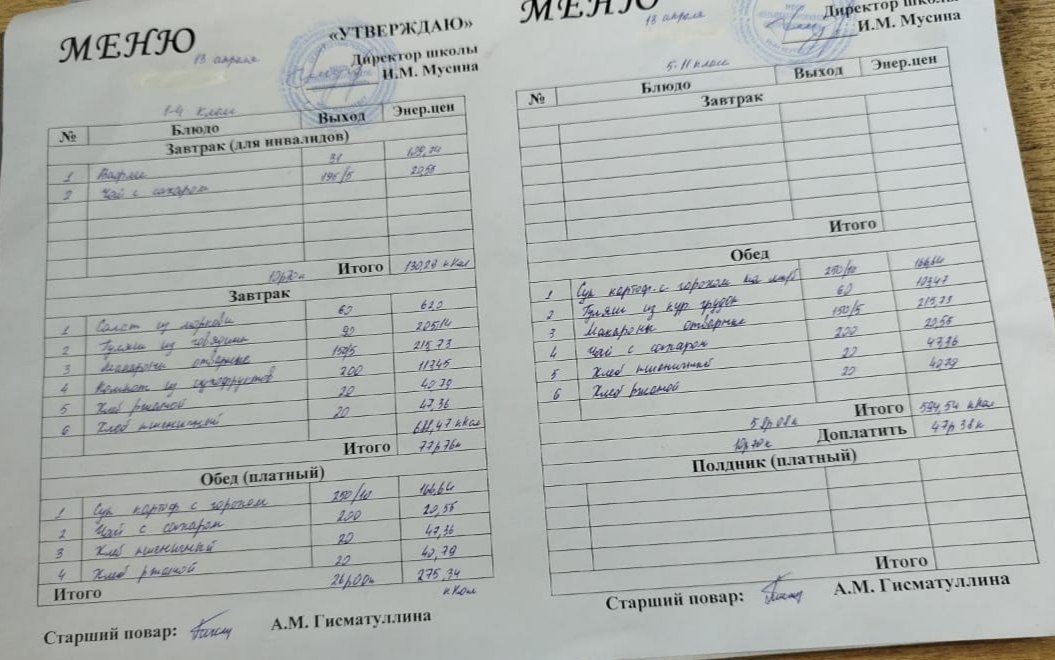 МЕНЮ
«УТВЕРЖДАЮ»
13 апреля
Директор школы
И.М. Мусина
1-4 класс
№ Блюдо Выход Энер.цен
Завтрак (для инвалидов)
1 Вафли 31 109,74
2 Чай с сахаром 195/5 20,55
10р70к Итого 130,29 кКал
Завтрак
1 Салат из моркови 60 62,0
2 Гуляш из говядины 90 205,14
3 Макароны отварные 150/5 215,73
4 Компот из сухофруктов 200 117,45
5 Хлеб ржаной 20 40,79
6 Хлеб пшеничный 20 47,36
688,47 кКал
Итого 77р76к
Обед (платный)
1 Суп картоф. с горохом 250/10 166,64
2 Чай с сахаром 200 20,55
3 Хлеб пшеничный 20 47,36
4 Хлеб ржаной 20 40,79
Итого 26р00к 275,34 кКал
Старший повар: А.М. Гисматуллина
МЕНЮ
13 апреля
Директор школы
И.М. Мусина
5-11 класс
№ Блюдо Выход Энер.цен
Завтрак
Итого
Обед
1 Суп картоф. с горохом 250/10 166,64
2 Гуляш из кур. грудки 60 103,47
3 Макароны отварные 150/5 215,73
4 Чай с сахаром 200 20,55
5 Хлеб пшеничный 20 47,36
6 Хлеб ржаной 20 40,79
58р08к Итого 594,54 кКал
10р70к Доплатить 47р38к
Полдник (платный)
Итого
Старший повар: А.М. Гисматуллина